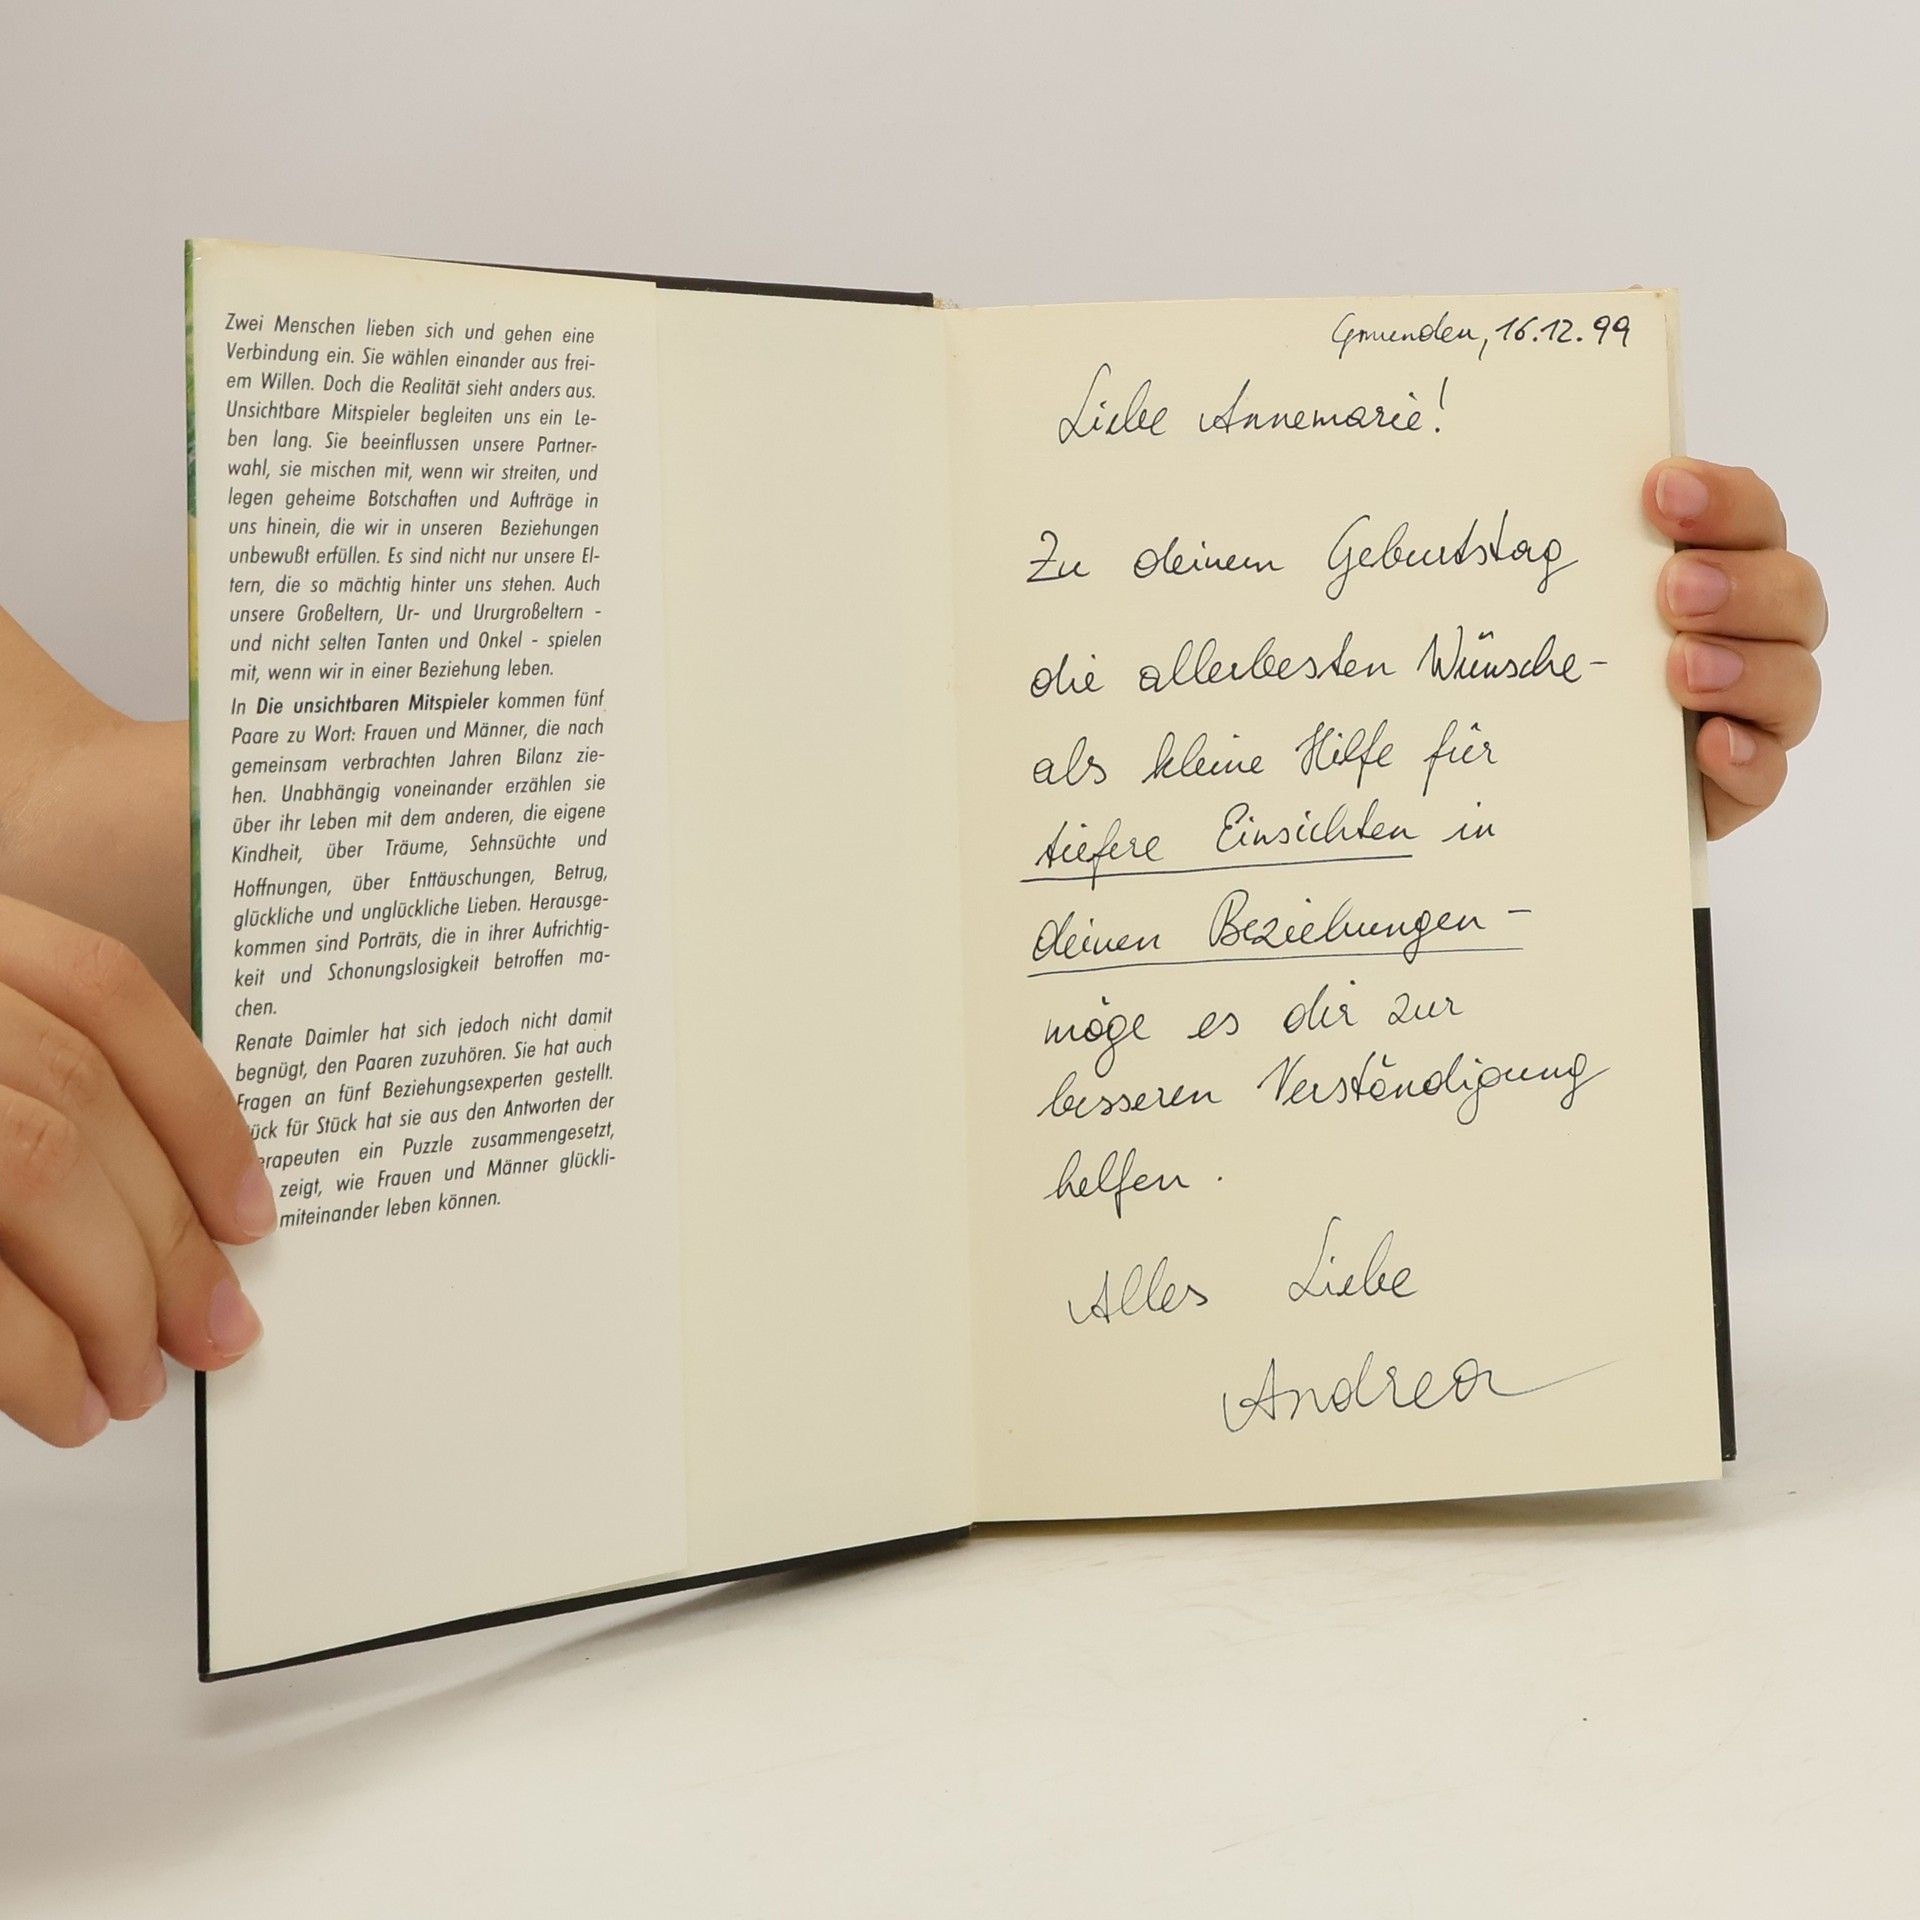 Zwei Menschen lieben sich und gehen eine
Verbindung ein. Sie wählen einander aus frei-
em Willen. Doch die Realität sieht anders aus.
Unsichtbare Mitspieler begleiten uns ein Le-
ben lang. Sie beeinflussen unsere Partner-
wahl, sie mischen mit, wenn wir streiten, und
legen geheime Botschaften und Aufträge in
uns hinein, die wir in unseren Beziehungen
unbewußt erfüllen. Es sind nicht nur unsere El-
tern, die so mächtig hinter uns stehen. Auch
unsere Großeltern, Ur- und Ururgroßeltern -
und nicht selten Tanten und Onkel - spielen
mit, wenn wir in einer Beziehung leben.
In Die unsichtbaren Mitspieler kommen fünf
Paare zu Wort: Frauen und Männer, die nach
gemeinsam verbrachten Jahren Bilanz zie-
hen. Unabhängig voneinander erzählen sie
über ihr Leben mit dem anderen, die eigene
Kindheit, über Träume, Sehnsüchte und
Hoffnungen, über Enttäuschungen, Betrug,
glückliche und unglückliche Lieben. Herausge-
kommen sind Porträts, die in ihrer Aufrichtig-
keit und Schonungslosigkeit betroffen ma-
chen.
Renate Daimler hat sich jedoch nicht damit
begnügt, den Paaren zuzuhören. Sie hat auch
Fragen an fünf Beziehungsexperten gestellt.
ück für Stück hat sie aus den Antworten der
erapeuten ein Puzzle zusammengesetzt,
zeigt, wie Frauen und Männer glückli-
miteinander leben können.
Gmunden, 16.12.99
Liebe Annemarie!
Zu deinem Geburtstag
die allerbesten Wünsche -
als kleine Hilfe für
tiefere Einsichten in
deinen Beziehungen -
möge es dir zur
besseren Verständigung
helfen.
Alles Liebe
Andrea